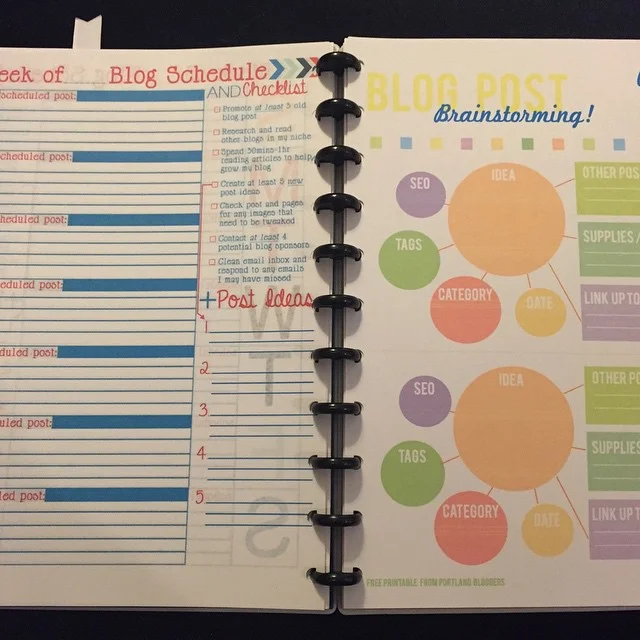 eek of Blog Schedule
AND Checklist
scheduled post:
scheduled post:
cheduled post:
eduled post:
duled post:
uled post:
led post:
Promote at least 3 old
blog post
Research and read
other blogs in my niche
Spend 30mins-1hr
reading articles to help
grow my blog
Create at least 5 new
post ideas
Check post and pages
for any images that
need to be tweaked
Contact at least 4
potential blog sponsors
Clean email inbox and
respond to any emails
I may have missed
+Post Ideas
1
2
3
4
5
BLOG POST
Brainstorming!
SEO
IDEA
OTHER POS
TAGS
SUPPLIES /
CATEGORY
DATE
LINK UP TO
SEO
IDEA
OTHER PO
TAGS
SUPPLIES
CATEGORY
DATE
LINK UP T
FREE PRINTABLE FROM PORTLAND BLOGGERS